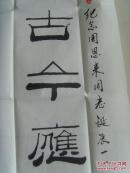 纪念周恩来同志诞辰一
古今應